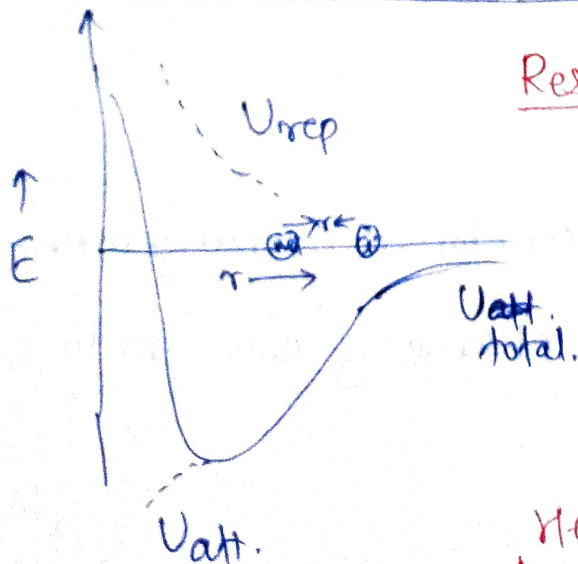 Res
Urep
r
E
r
Uatt.
total.
Uatt.
He